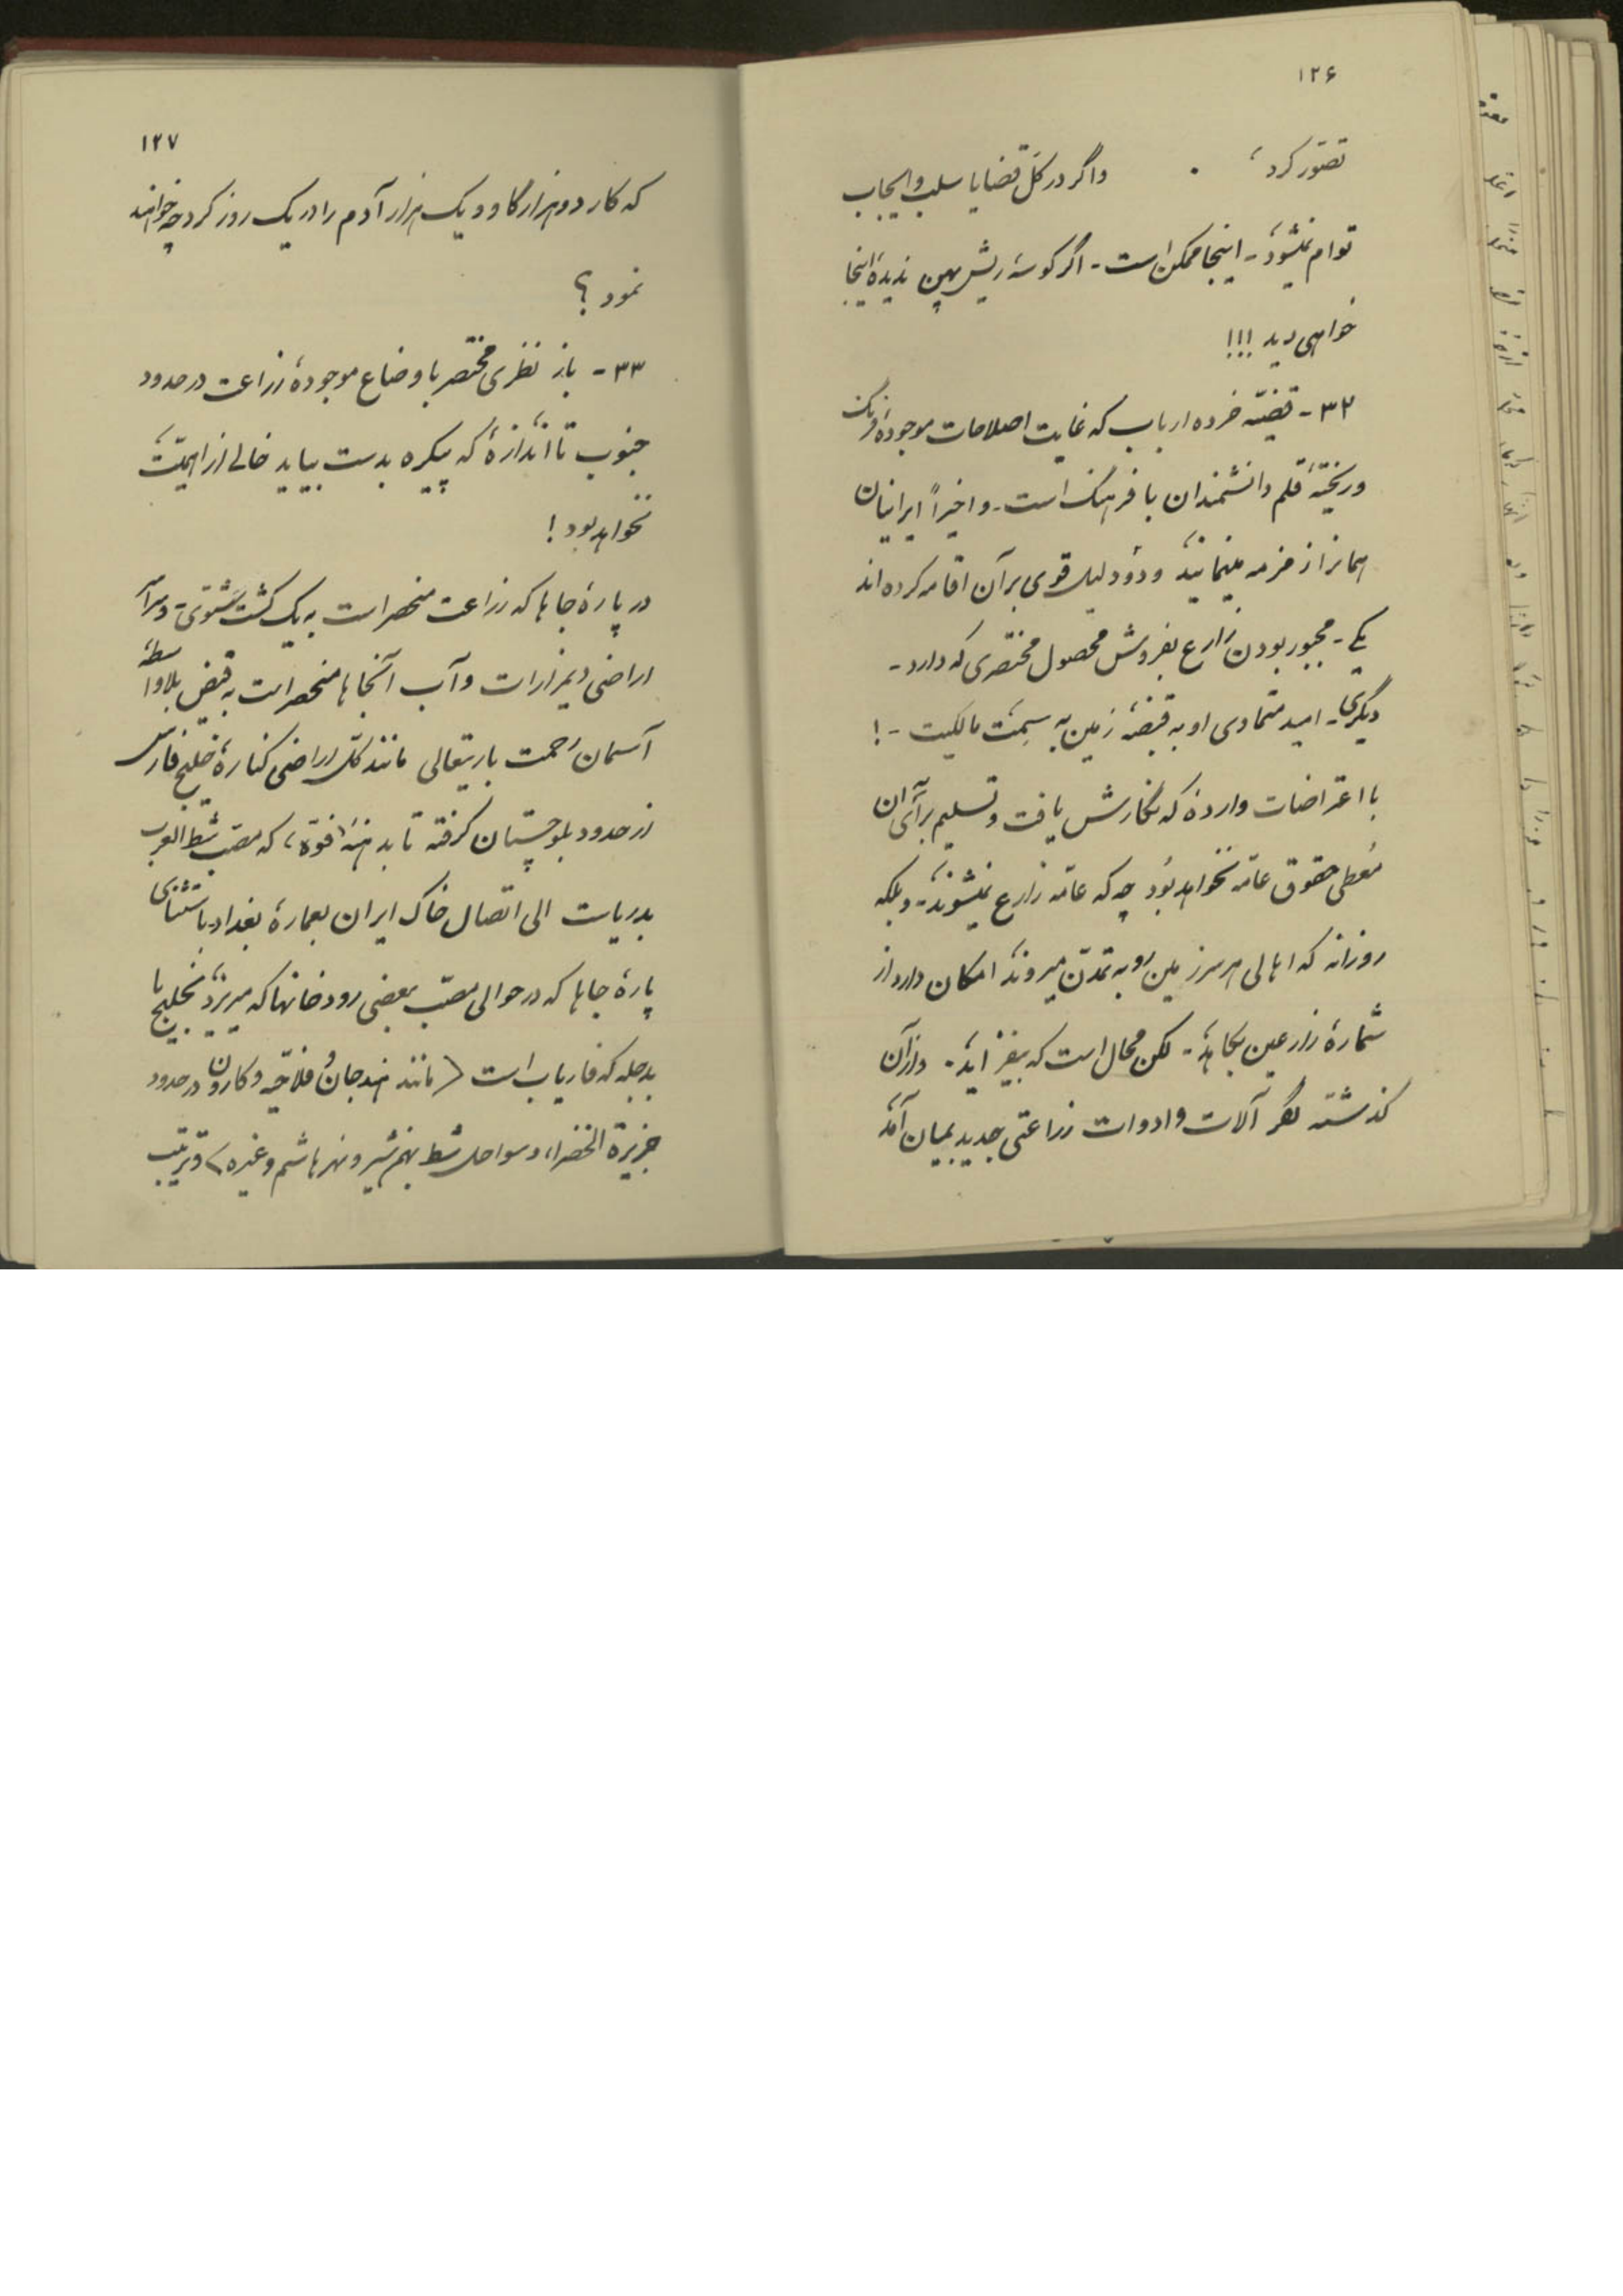 ۱۲۶
تصوّر کرد، . واگر در کلّ قضایا سلب و ایجاب
توام نمیشود - اینجا ممکن است - اگر کوسهٔ ریش پهن ندیدهٔ اینجا
خواهی دید !!!
۳۲ - قضیّه خرده ارباب که غایت اصلاحات موجودهٔ فرنگ
و ریختهٔ قلم دانشمندان با فرهنگ است - و اخیراً ایرانیان
همانرا زمزمه مینمایند و دو دلیل قوی بر آن اقامه کرده اند
یکی - مجبور بودن زارع بفروش محصول مختصری که دارد -
دیگری - امید متمادی او به قبضهٔ زمین به سِمَت مالکیت - !
با اعتراضات وارده که نگارش یافت و تسلیم برآی آن
مُعطی حقوق عامّه نخواهد بُود چه که عامّه زارع نمیشوند - و بلکه
روزانه که اهالی هر سرزمین رو به تمدّن میروند امکان دارد از
شمارهٔ زارعین بکاهد - لکن محال است که بیفزاید - و از آن
گذشته اگر آلات و ادوات زراعتی جدید بمیان آمد
۱۲۷
که کار دو هزار گاو و یک هزار آدم را در یک روز کرد چه خواهند
نمود ؟
۳۳ - باز نظری مختصر با وضاع موجودهٔ زراعت در حدود
جنوب تا اندازهٔ که پیکره بدست بیاید خالی از اهمیّت
نخواهد بود !
در پارهٔ جاها که زراعت منحصر است به یک کشت شتوی - و سرآسر
اراضی دیمزارات و آب آنجاها منحصر است به فیض بلاواسطهٔ
آسمان رحمت باریتعالی مانند کلّ اراضی کنارهٔ خلیج فارس
از حدود بلوچستان گرفته تا بدهنهٔ فوّه، که مصبّ شط العرب
بدریات الی اتصال خاک ایران بعمارهٔ بغداد باستثنای
پارهٔ جاها که در حوالی مصبّ بعضی رودخانها که میریزد بخلیج یا
بدجله که فاریاب است (مانند هندجان و فلاحیّه و کارون در حدود
جزیرة الخضراء و سواحل شط بهمنشیر و نهر هاشم و غیره) و ترتیب